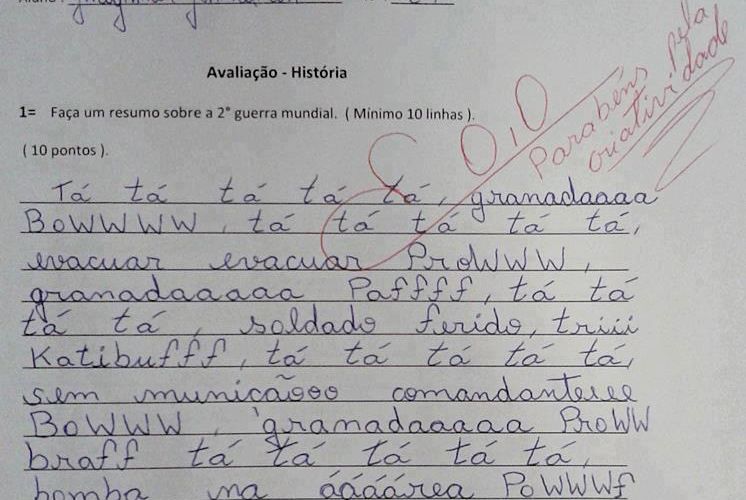 Avaliação - História
1= Faça um resumo sobre a 2° guerra mundial. ( Mínimo 10 linhas ).
( 10 pontos ).
0,0
Parabéns pela
criatividade
Tá tá tá tá tá, granadaaaa
BoWWWW, tá tá tá tá tá,
evacuar evacuar ProWWW,
granadaaaaa Paffff, tá tá
tá tá, soldado ferido, triiii
Katibufff, tá tá tá tá tá,
sem muniçãooo comandanteeee
BoWWW, granadaaaaa ProWW
braff tá tá tá tá tá,
bomba na áááárea PoWWWf